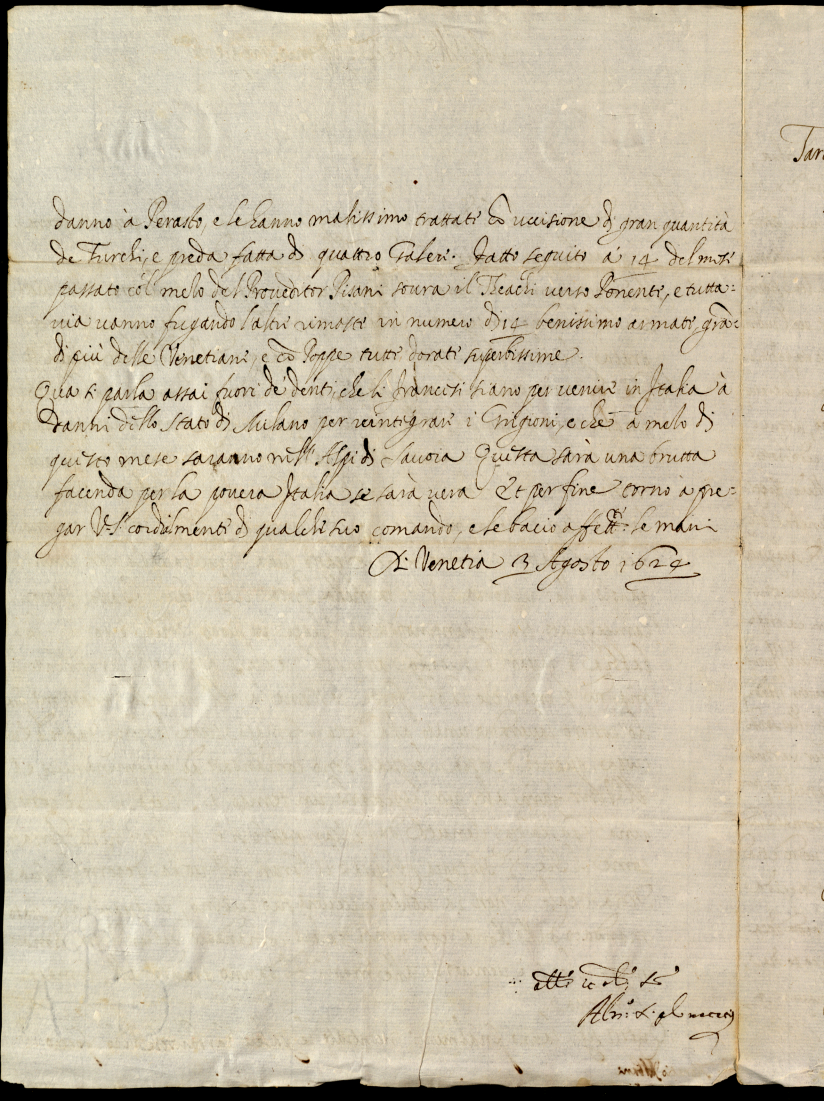 danno à Perasto, e le hanno malissimo trattate cõ uccisione di gran quantità
de Turchi, e preda fatta di quattro Galere. Fatto seguito a' 14 del mese
passato col melo del Proveditor Pisani soura il Theachi verso Ponente, e tutta=
via vanno fugando l'altre rimaste in numero di 14 benissimo armate, grã=
di più delle Venetiane, e cõ Poppe tutte dorate superbissime.
Qua si parla assai fuori de' denti, che li Francesi siano per venire in Italia à
danni dello Stato di Milano per reintegrare i Grigioni, e che a melo di
questo mese saranno nell' Alpi di Savoia Questa sarà una brutta
facenda per la povera Italia se sarà vera Et per fine torno a pre=
gar V.S. cordialmente di qualche suo comando, e le bacio affett.te le mani
Di Venetia 3 Agosto 1624